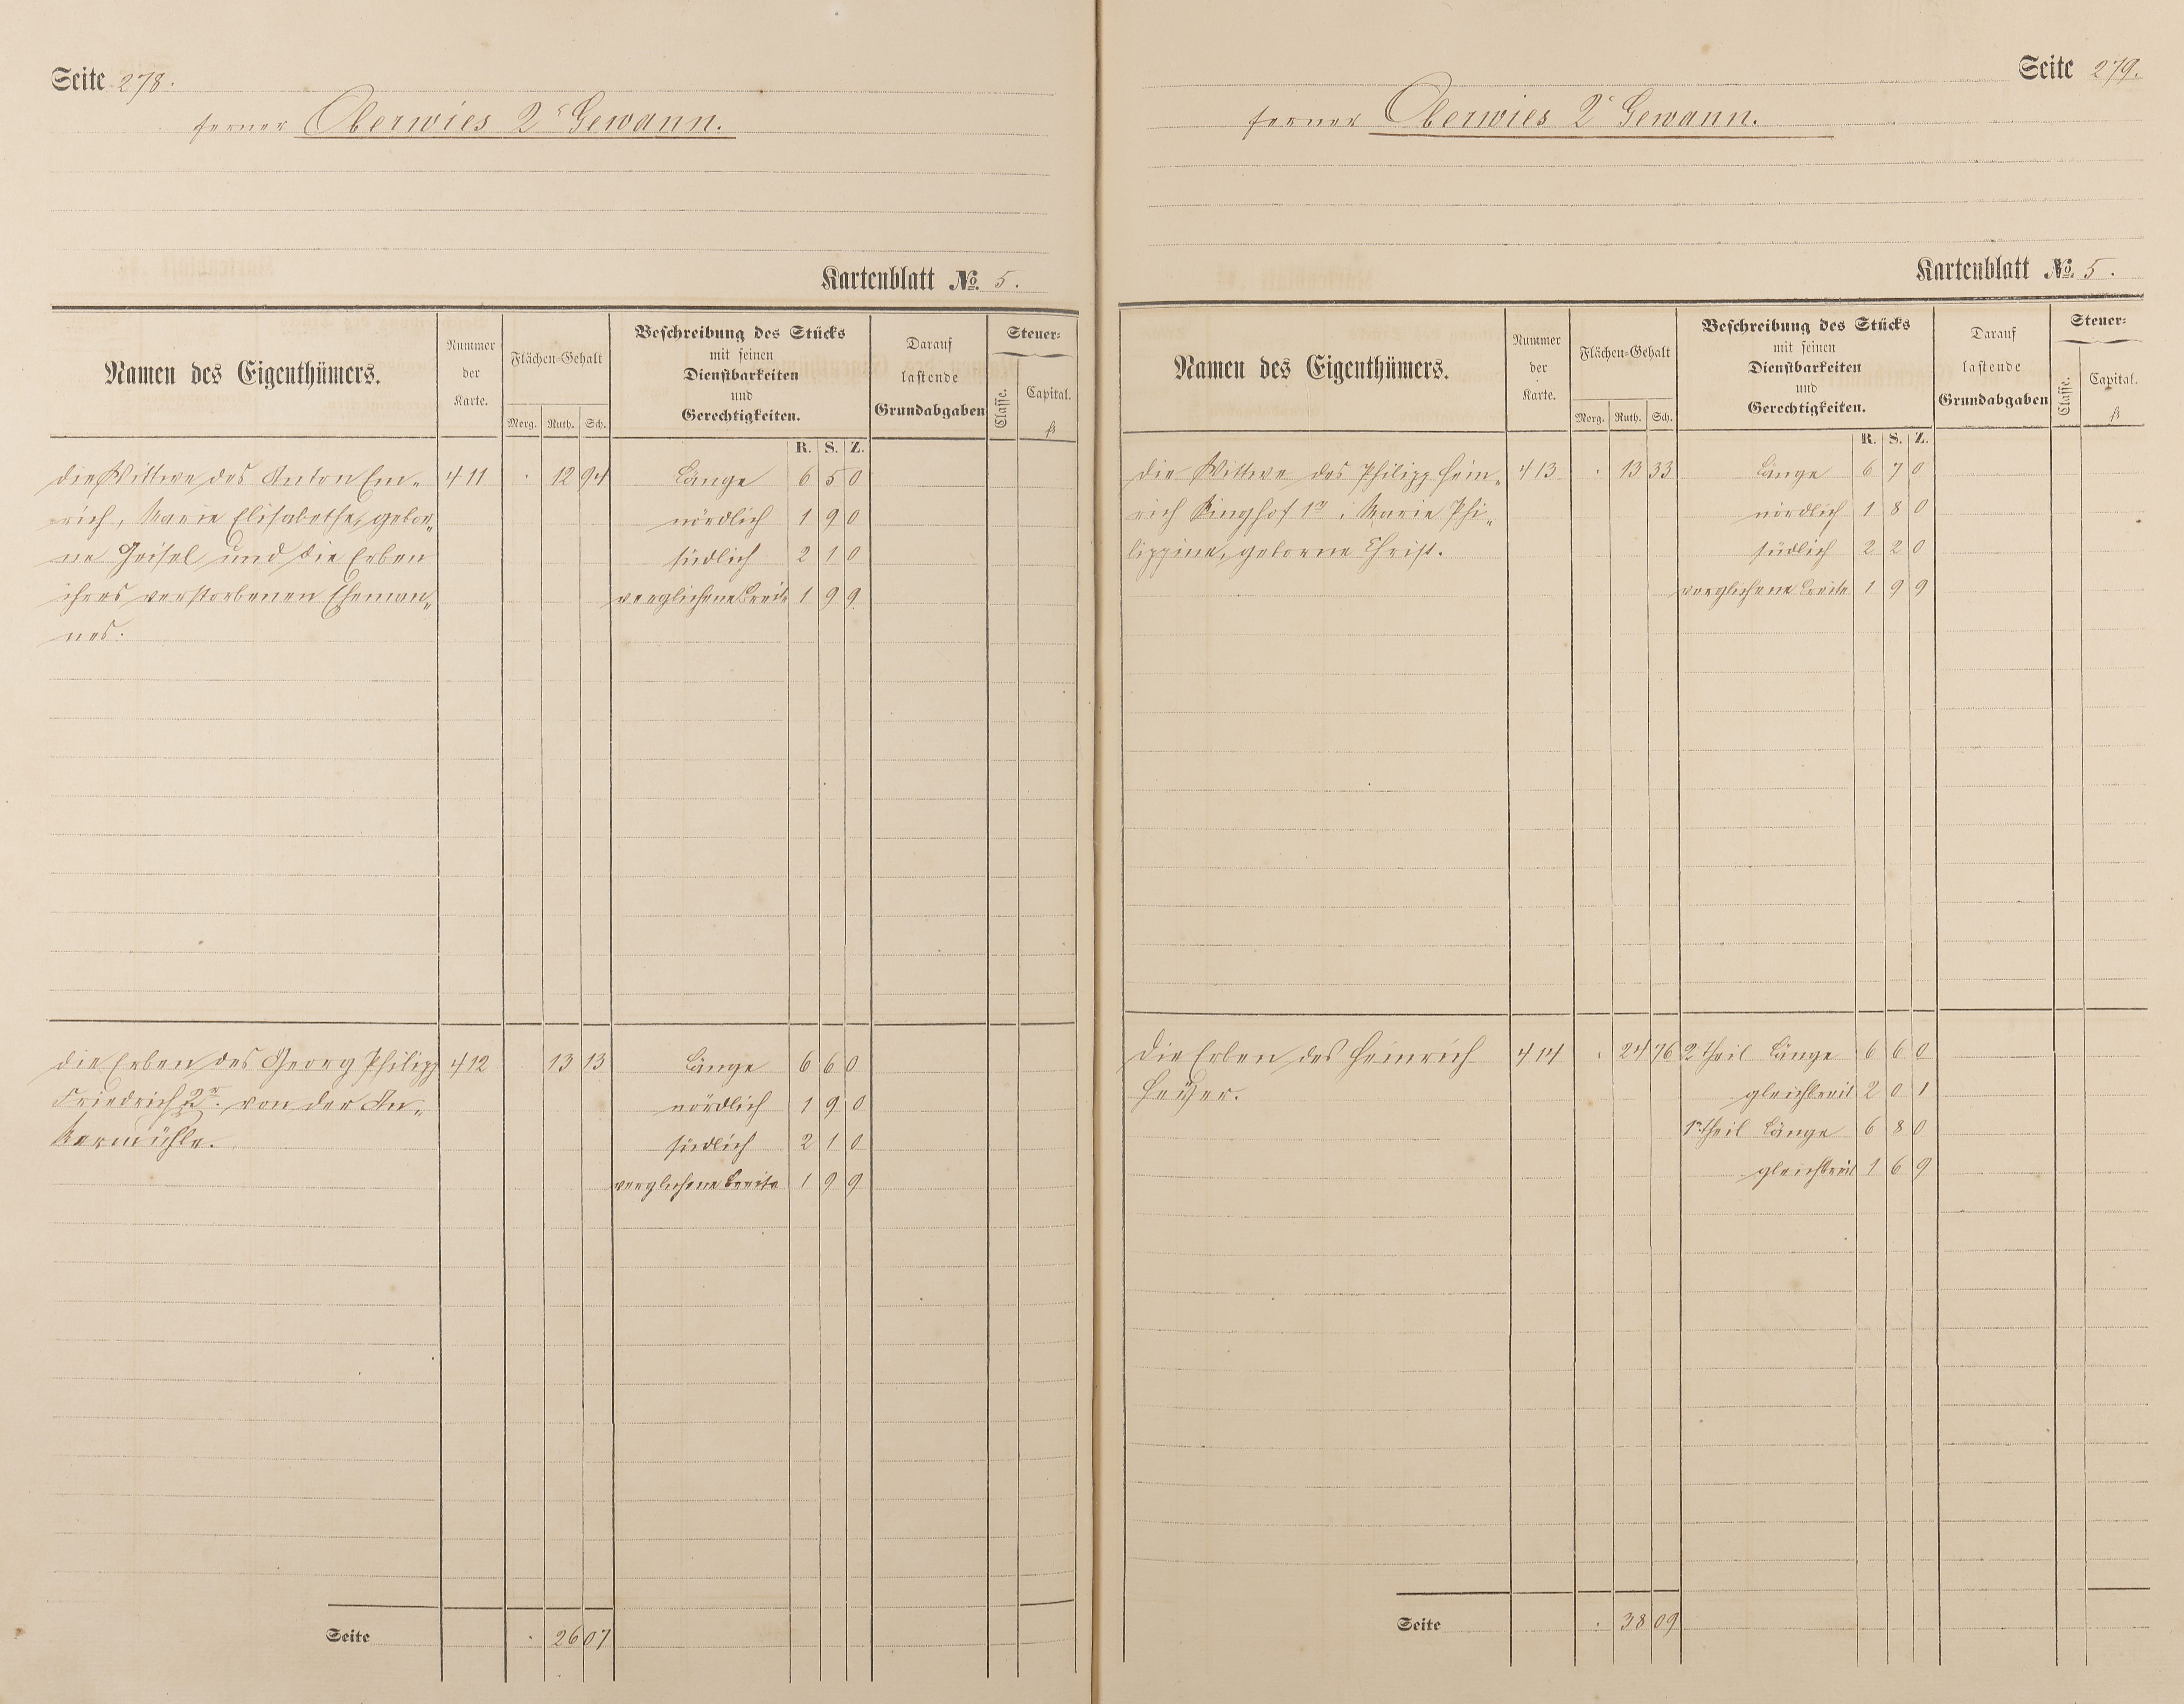 Seite 278.
ferner Oberwies 2r Gewann.
Kartenblatt No. 5.
Namen des Eigenthümers.
Nummer der Karte.
Flächen-Gehalt
Morg. Ruth. Sch.
Beschreibung des Stücks
mit seinen
Dienstbarkeiten
und
Gerechtigkeiten.
Darauf
lastende
Grundabgaben
Steuer-
Classe. Capital.
fl
R. S. Z.
die Wittwe des Anton Em- 411 . 12 94 Länge 6 5 0
rich, Marie Elisabethe, gebor- nördlich 1 9 0
ne Geisel und die Erben südlich 2 1 0
ihres verstorbenen Eheman- verglichene Breite 1 9 9
nes.
die Erben des Georg Philipp 412 13 13 Länge 6 6 0
Friedrich 2r. von der nördlich 1 9 0
südlich 2 1 0
verglichene Breite 1 9 9
Seite . 26 07
Seite 279.
ferner Oberwies 2r Gewann.
Kartenblatt No. 5.
Namen des Eigenthümers.
Nummer der Karte.
Flächen-Gehalt
Morg. Ruth. Sch.
Beschreibung des Stücks
mit seinen
Dienstbarkeiten
und
Gerechtigkeiten.
Darauf
lastende
Grundabgaben
Steuer-
Classe. Capital.
fl
R. S. Z.
die Wittwe des Philipp Hein- 413 . 13 33 Länge 6 7 0
rich Ringhof 1r, Marie Phi- nördlich 1 8 0
lippine, geborne Christ. südlich 2 2 0
verglichene Breite 1 9 9
die Erben des Heinrich 414 . 24 76 2 Theil Länge 6 6 0
gleichbreit 2 0 1
1r Theil Länge 6 8 0
gleichbreit 1 6 9
Seite . 38 09